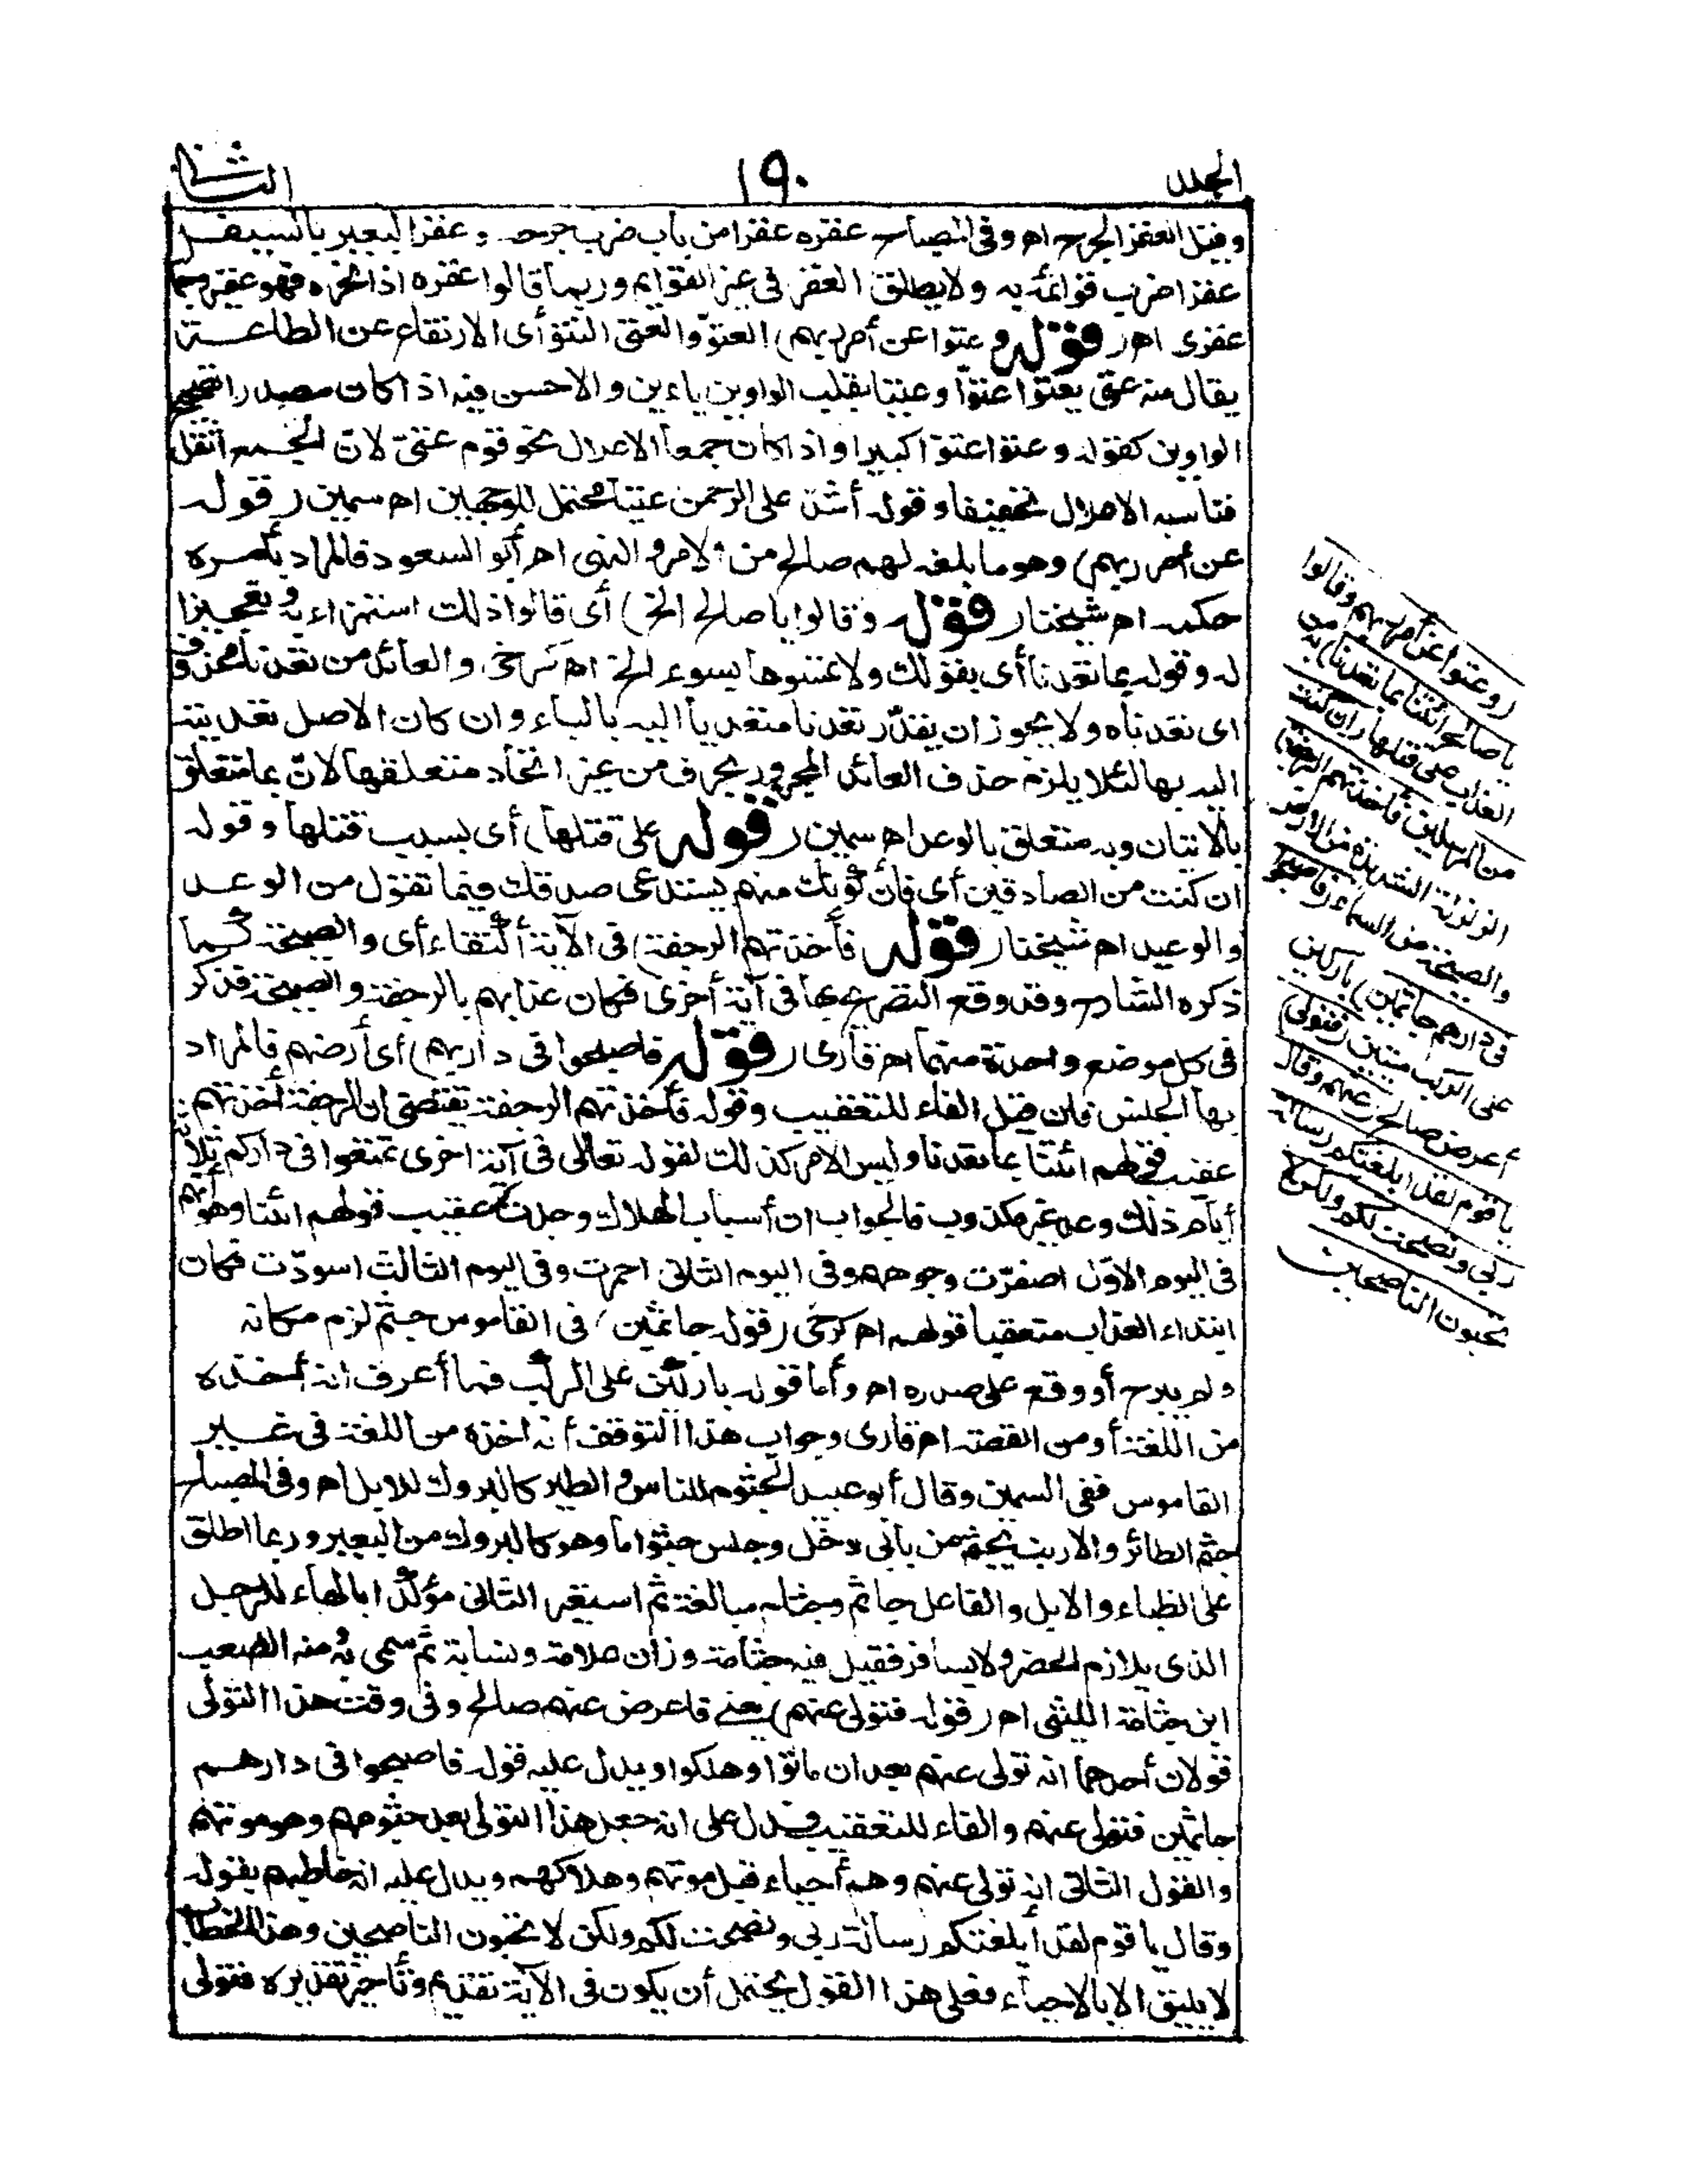 المجلد
١٩٠
الثانی
وقيل العقر الجرح اه وفى المصباح عقره عقرا من باب ضرب جرحه وعقر البعير بالسيف
عقرا ضرب قوائمه به ولا يطلق العقر فى غير القوائم وربما قالوا عقره اذا نحره فهو عقير وجمـ
عقرى اه (قوله وعتوا عن أمر ربهم) العتو والعتى النتو أى الارتفاع عن الطاعـــة
يقال منه عتى يعتوا عتوّا وعتيا بقلب الواوين ياءين والاحسن فيه اذا كان مصدرا تصحيح
الواوين كقوله وعتوا عتوّا كبيرا واذا كان جمعا الاعلال نحو قوم عتىّ لانّ الجمع أثقل
فناسبه الاعلال تخفيفا وقوله أشدّ على الرحمن عتيا محتمل للوجهين اه سمين (قوله
عن أمر ربهم) وهو ما بلغه لهم صالح من الامر والنهى اه أبو السعود فالمراد بأمـره
حكمه اه شيخنا (قوله وقالوا يا صالح الخ) أى قالوا ذلك استهزاء به وتعجيزا
له وقوله بما تعدنا أى بقولك ولا تمسوها بسوء الخ اه كرخى والعائد من تعدنا محذوف
اى تعدناه ولا يجوز ان يقدّر تعدنا متعديا اليه بالباء وان كان الاصل تعديته
اليه بها لئلا يلزم حذف العائد المجرور بحرف من غير اتحاد متعلقهما لانّ بما متعلق
بالاتيان وبه متعلق بالوعد اه سمين (قوله على قتلها) أى بسبب قتلها وقوله
ان كنت من الصادقين أى فانّ كونك منهم يستدعى صدقك فيما تقول من الوعـد
والوعيد اه شيخنا (قوله فأخذتهم الرجفة) فى الآية اكتفاء أى والصيحة كـما
ذكره الشارح وقد وقع التصريح بها فى آية أخرى فكان عذابهم بالرجفة والصيحة فذكر
فى كل موضع واحدة منهما اه قارى (قوله فاصبحوا فى دارهم) أى أرضهم فالمراد
بها الجنس فان قيل الفاء للتعقيب وقوله فأخذتهم الرجفة يقتضى ان الرجفة أخذتهم
عقيب قولهم ائتنا بما تعدنا وليس الامر كذلك لقوله تعالى فى آية اخرى تمتعوا فى داركم ثلاثة
أيام ذلك وعد غير مكذوب فالجواب ان أسباب الهلاك وجدت عقيب قولهم ائتنا وهو أنهم
فى اليوم الاوّل اصفرّت وجوههم وفى اليوم الثانى احمرت وفى اليوم الثالث اسودّت فكان
ابتداء العذاب متعقبا قولهم اه كرخى (قوله جاثمين) فى القاموس جثم لزم مكانه
ولم يبرح أو وقع على صدره اه وأما قوله باركين على الركب فما أعرف انه أخذه
من اللغة أو من القصة اه قارى وجواب هذا التوقف أنه اخذه من اللغة فى غــير
القاموس ففى السمين وقال أبو عبيد الجثوم للناس والطير كالبروك للابل اه وفى المصباح
جثم الطائر والارنب يجثم من بابى دخل وجلس جثوما وهو كالبروك من البعير وربما اطلق
على الظباء والابل والفاعل جاثم وجثامه مبالغة ثم استعير الثانى مؤكدا بالهاء للرجل
الذى يلازم الحضر ولا يسافر فقيل فيه جثامة وزان علامة ونسابة ثم سمى به ومنه الصعب
ابن جثامة الليثى اه (قوله فتولى عنهم) يعنى فاعرض عنهم صالح وفى وقت هذا التولى
قولان أحدهما انه تولى عنهم بعد ان ماتوا وهلكوا ويدل عليه قوله فاصبحوا فى دارهـم
جاثمين فتولى عنهم والفاء للتعقيب فدل على انه جعل هذا التولى بعد جثومهم وهو موتهم
والقول الثانى انه تولى عنهم وهم أحياء قبل موتهم وهلاكهم ويدل عليه انه خاطبهم بقوله
وقال يا قوم لقد أبلغتكم رسالة ربى ونصحت لكم ولكن لا تحبون الناصحين وهذا الخطاب
لا يليق الا بالاحياء فعلى هذا القول يحتمل أن يكون فى الآية تقديم وتأخير تقديره فتولى
(وعتوا عن أمر ربهم وقالوا
يا صالح ائتنا بما تعدنا) به من
العذاب على قتلها (ان كنت
من المرسلين فأخذتهم الرجفة)
الزلزلة الشديدة من الارض
والصيحة من السماء (فاصبحوا
فى دارهم جاثمين) باركين
على الركب ميتين (فتولى)
أعرض صالح (عنهم وقال
يا قوم لقد ابلغتكم رسالة
ربى ونصحت لكم ولكن لا
تحبون الناصحين